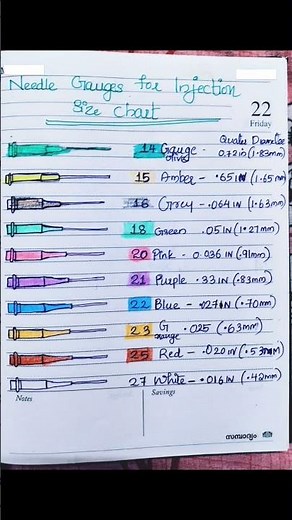 Needle Gauges for Injection
Size Chart
22
Friday
Outer Diameter
14 Gauge olive - 0.72in (1.83mm)
15 Amber - .65IN (1.65mm)
16 Grey - .064IN (1.63mm)
18 Green .05IN (1.27mm)
20 Pink - 0.036in (.91mm)
21 Purple .33IN (.83mm)
22 Blue - .227IN (.70mm)
23 Orange .025 (.63mm)
25 Red - .020IN (.53mm)
27 White - .016IN (.42mm)
Notes
Savings
സമ്പാദ്യം